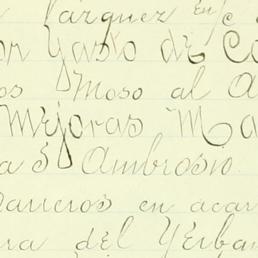 Vazquez En/c
or Gasto de Co
os Moso al A
Mejoras Ma
a S Ambrosio.
arreros en acar
ra del Yerba